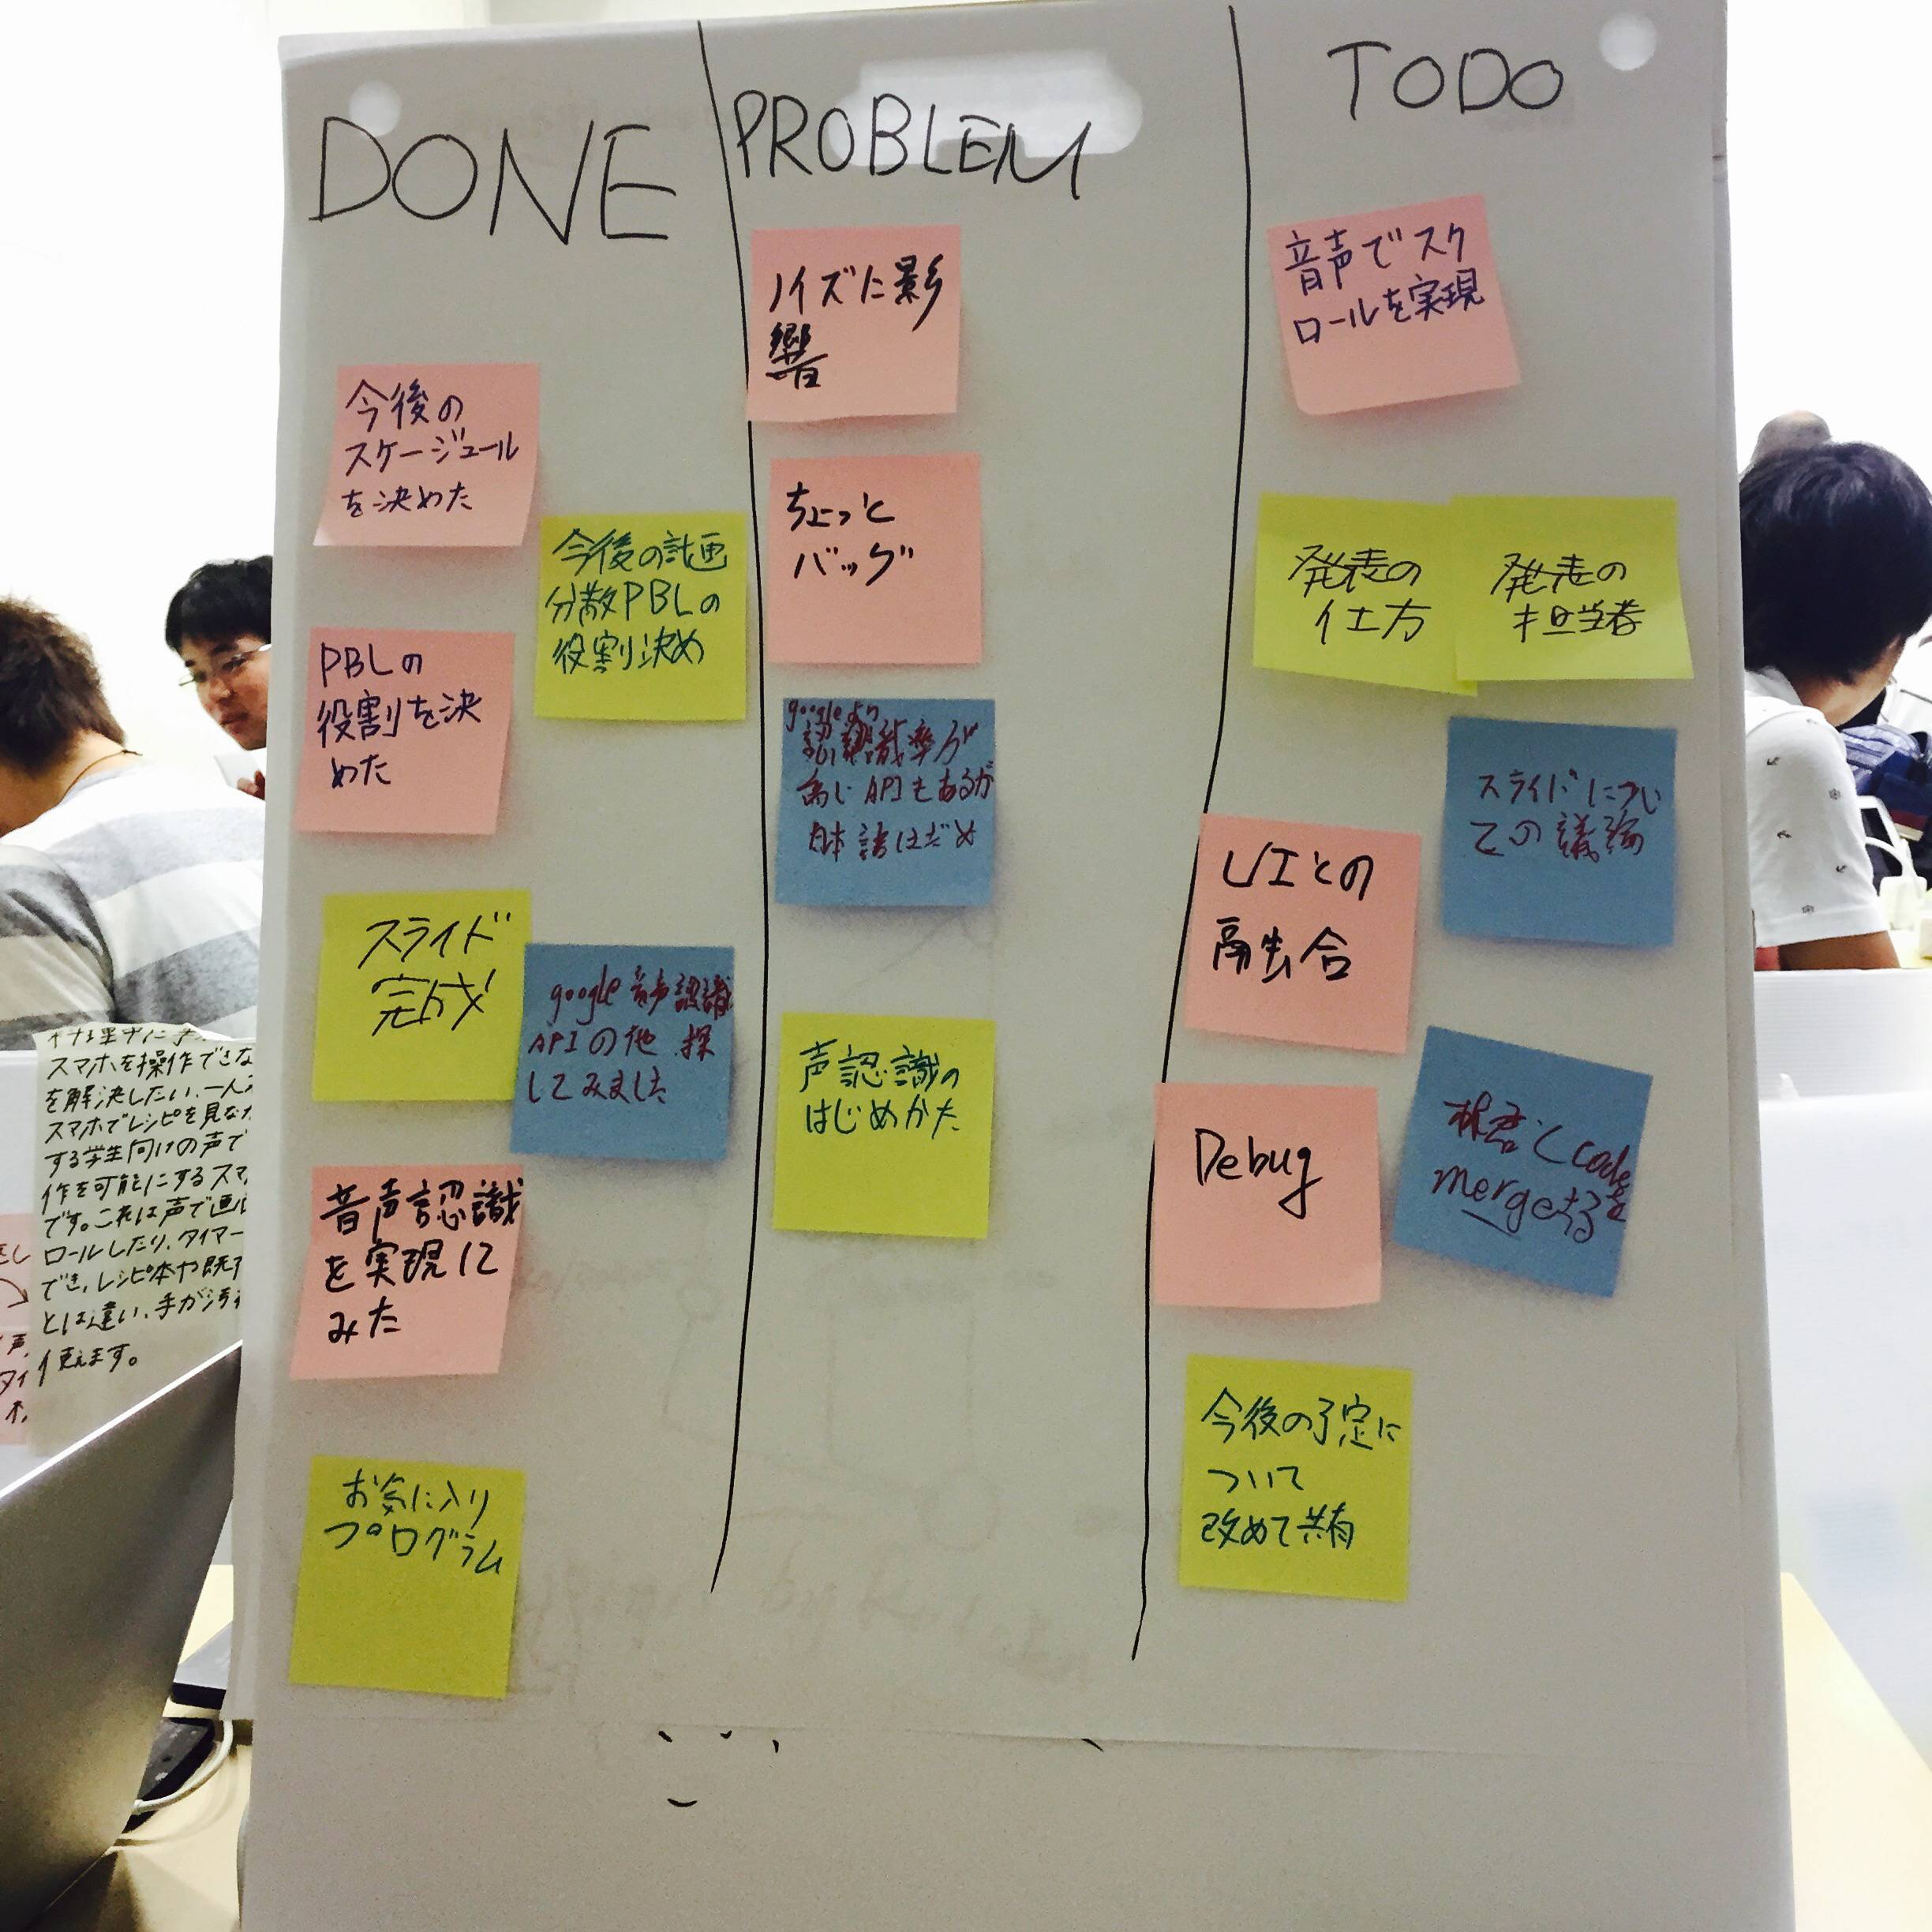 DONE
今後の
スケージュール
を決めた
今後の計画
分散PBLの
役割決め
PBLの
役割を決
めた
スライド
完成
google音声認識
APIの他 探
してみました
音声認識
を実現に
みた
お気に入り
プログラム
PROBLEM
ノイズに影
響
ちょっと
バッグ
googleより
認識率が
高い APIもあるが
日本語はだめ
声認識の
はじめかた
TODO
音声でスク
ロールを実現
発表の
仕方
発表の
担当者
スライドについ
ての議論
UIとの
融合
Debug
code
mergeする
今後の予定に
ついて
改めて共有
スマホを操作できな
を解決したい、一人
スマホでレシピを見な
する学生向けの声で
作を可能にするスマ
です。これは声で画
ロールしたり、タイマー
でき、レシピ本や既
とは違い、手が汚
使えます。
声
タイ